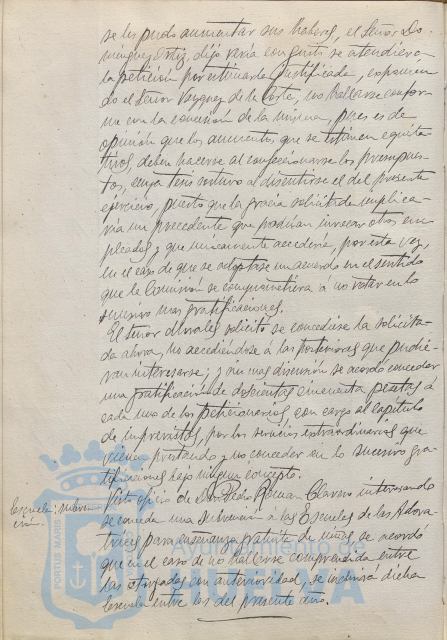 se les pudo aumentar sus haberes, el Señor Do-
minguez Ortiz, dijo vería con gusto se atendiera
la petición por estimarla justificada, exponien-
do el Señor Vazquez de la Corte, no hallarse confor-
me con la concesión de la misma, pues es de
opinión que los aumentos que se estimen equita-
tivos deben hacerse al confeccionarse los presupues-
tos, cuya tesis sostuvo al discutirse el del presente
ejercicio, puesto que la gracia solicitada implica-
ría un precedente que podrían invocar otros em-
pleados y que unicamente accedería, por esta vez,
en el caso de que se adoptase un acuerdo en el sentido
que la Comisión se comprometiera a no votar en lo
sucesivo mas gratificaciones.
El Señor Morales solicitó se concediese la solicita-
da ahora, no accediéndose á las posteriores que pudie-
ran interesarse; y sin mas discusión se acordó conceder
una gratificación de doscientas cincuenta pesetas á
cada uno de los peticionarios, con cargo al capítulo
de imprevistos, por los servicios extraordinarios que
vienen prestando y no conceder en lo sucesivo gra-
tificaciones bajo ningun concepto.
Escuela; subven-
ción
Visto oficio de Don Pedro Roman Clavero interesando
se conceda una subvención á las Escuelas de las Adora-
trices para enseñanza gratuita de niñas, se acordó
que en el caso de no hallarse comprendida entre
las otorgadas con anterioridad, se incluirá dicha
Escuela entre las del presente año.
PORTUS MARIS
Ayuntamiento de
HUELVA